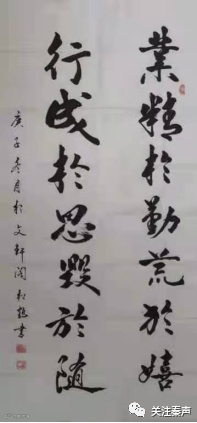 業精於勤荒於嬉
行成於思毀於隨
庚子冬月於文軒閣
关注秦声